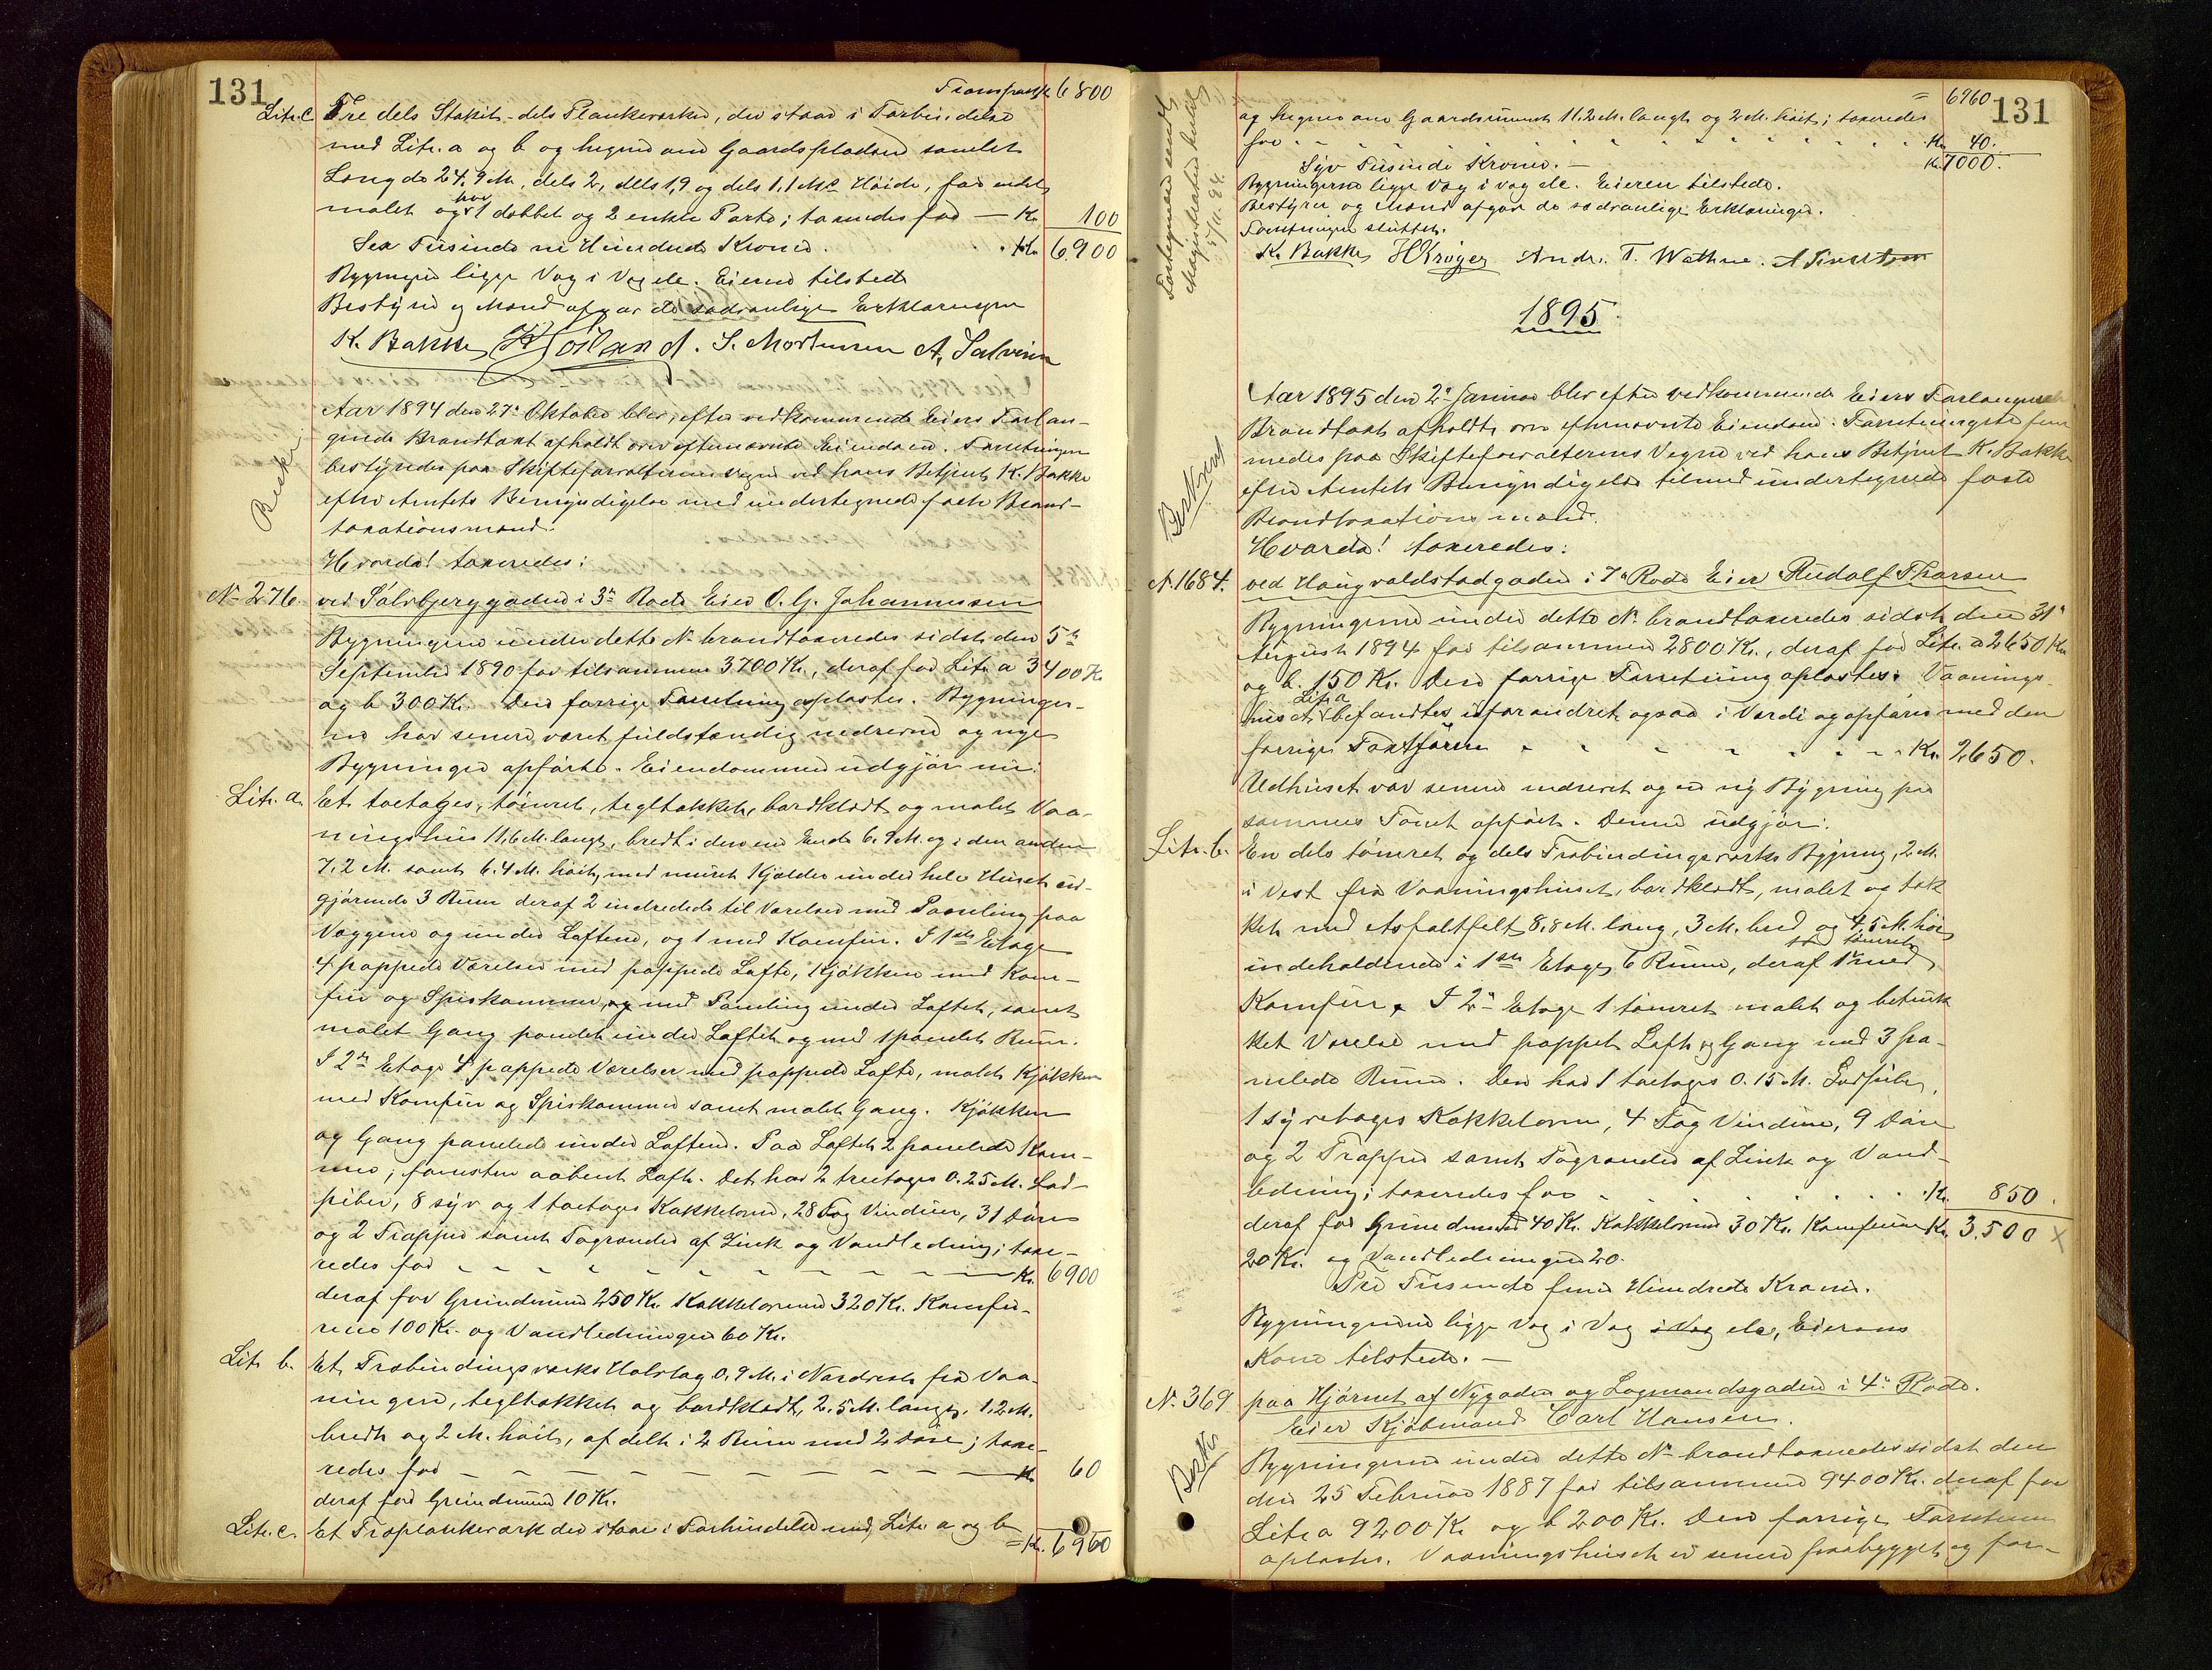 131
Transport 6800
Litr. c. Tre dels Stakit- dels Plankeværker, der staar i Forbindelse
med Litr. a og b og hegner om Gaardspladsen samlet
Længde 24,9 M., dels 2, dels 1,9 og dels 1,1 M. Höide, for endel
malet og har 1 dobbel og 2 enkle Porte; taxeredes for — Kr. 100
Sex Tusinde ni Hundrede Kroner. Kr. 6900
Bygningerne ligge Væg i Væg etc. Eieren tilstede
Bestyrer og Mænd afgav de sædvanlige Erklæringer
K. Bakke Höiland. S. Mortensen A. Salvesen
Aar 1894 den 27de Oktober blev, efter vedkommende Eiers Forlan-
gende Brandtaxt afholdt over efternævnte Eiendom. Forretningen
bestyredes paa Skifteforvalterens Vegne ved hans Betjent K. Bakke
efter Amtets Bemyndigelse med undertegnede faste Brand-
taxationsmænd.
Hvorda! taxeredes:
Beskr.
No 276. ved Sølvbjerggaden i 3die Rode Eier O. G. Johannessen
Bygningerne under dette No brandtaxeredes sidst den 5te
September 1890 for tilsammen 3700 Kr., deraf for Litr. a 3400 Kr.
og b 300 Kr. Den forrige Forretning oplæstes. Bygninger-
ne har senere været fuldstændig nedrevne og nye
Bygninger opførte. Eiendommen udgjör nu:
Litr. a. Et toetages, tömret, tegltækket, bordklædt og malet Vaa-
ningshus 11,6 M. langt, bredt i den ene Ende 6.9 M. og i den anden
7,2 M. samt 6.4 M. höit, med muret Kjælder under hele Huset ud-
gjörende 3 Rum deraf 2 indredede til Værelser med Paneling paa
Væggene og under Loftene, og 1 med Komfur. I 1ste Etage
4 pappede Værelser med pappede Lofte, Kjökken med Kom-
fur og Spiskammer, og med Paneling under Loftet, samt
malet Gang panelet under Loftet og med 1 panelet Rum.
I 2den Etage 4 pappede Værelser med pappede Lofte, malet Kjökken
med Komfur og Spiskammer samt malet Gang. Kjökken
og Gang panelede under Loftene. Paa Loftet 2 panelede Kam-
mer, forresten aabent Loft. Det har 2 treetages 0.25 M. Lod-
piber, 8 syv og 1 toetages Kakkelovne, 28 Fag Vinduer, 31 Döre
og 2 Trapper samt Tagrender af Zink og Vandledning; taxe-
redes for Kr. 6900
deraf for Grundmure 250 Kr. Kakkelovnene 320 Kr. Komfu-
rene 100 Kr. og Vandledningen 60 Kr.
Litr b. Et Træbindingsværks Halvtag 0.9 M. i Nordvest fra Vaa-
ningen, tegltækket og bordklædt, 2.5 M. langt, 1.2 M.
bredt og 2 M. höit, afdelt i 2 Rum med 2 Döre; taxe-
redes for Kr. 60
deraf for Grundmure 10 Kr.
Litr. c. Et Træplankeværk der staar i Forbindelse med Litr. a og b
= Kr. 6960
131
= 6960
og hegner om Gaardsrummet 11.2 M. langt og 2 M. höit; taxeredes
for Kr. 40.
Syv Tusinde Kroner. — Kr. 7000.
Bygningerne ligge Væg i Væg etc. Eieren tilstede.
Bestyrer og Mænd afgav de sædvanlige Erklæringer.
Forretningen sluttet.
K. Bakke H Kröger Andr. T. Wathne.
1895.
Aar 1895 den 2den Januar blev efter vedkommende Eiers Forlangende
Brandtaxt afholdt over efternævnte Eiendom. Forretningerne frem-
medes paa Skifteforvalterens Vegne ved hans Betjent K. Bakke
efter Amtets Bemyndigelse tilmed undertegnede faste
Brandtaxationsmænd.
Hvorda! taxeredes:
N. 1684. ved Haugvaldstadgaden i 7de Rode Eier Rudolf Thorsen
Bygningerne under dette No brandtaxeredes sidst den 31te
August 1894 for tilsammen 2800 Kr., deraf for Litr. a 2650 Kr.
og b. 150 Kr. Den forrige Forretning oplæstes. Vaanings-
huset, Litr. a befandtes uforandret ogsaa i Værdi og opføres med den
forrige Taxtsum Kr. 2650.
Udhuset var senere nedrevet og en ny Bygning paa
sammes Tomt opfört. Denne udgjör:
Litr. b. En dels tömret og dels Træbindingsværks Bygning, 2 M.
i Vest fra Vaaningshuset, bordklædt, malet og tæk
ket med Asfaltfelt, 8,8 M. lang, 3 M. bred og 4,5 M. höi
indeholdende i 1ste Etage 6 Rum, deraf 1 tömret med
Komfur. I 2den Etage 1 tömret malet og betræk
ket Værelse med pappet Loft og Gang med 3 pa-
nelede Rum. Den har 1 toetages 0.15 M. Lodpibe,
1 syvetages Kakkelovn, 4 Fag Vinduer, 9 Döre
og 2 Trapper samt Tagrender af Zink og Vand-
ledning; taxeredes for Kr. 850.
deraf for Grundmure 40 Kr. Kakkelovne 30 Kr. Komfuren Kr. 3.500
20 Kr. og Vandledningen 20.
Tre Tusinde fem Hundrede Kroner.
Bygningerne ligge Væg i Væg etc, Eierens
Kone tilstede. —
N. 369 paa Hjörnet af Nygaden og Lagmandsgaden i 4de Rode.
Eier Kjöbmand Carl Hansen.
Bygningerne under dette No brandtaxeredes sidst den
den 25 Februar 1887 for tilsammen 9400 Kr. deraf for
Litr a 9200 Kr og b 200 Kr. Den forrige Forretning
oplæstes. Vaaningshuset er senere paabygget og for-